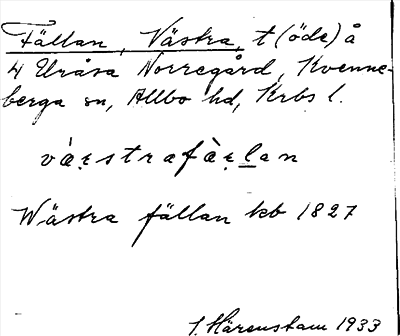 Fällan, Västra, t (öde) å
4 Uråsa Norregård, Kvenne-
berga sn, Allbo hd, Krbs l.
Wästra fällan kb 1827
I. Härenstam 1933